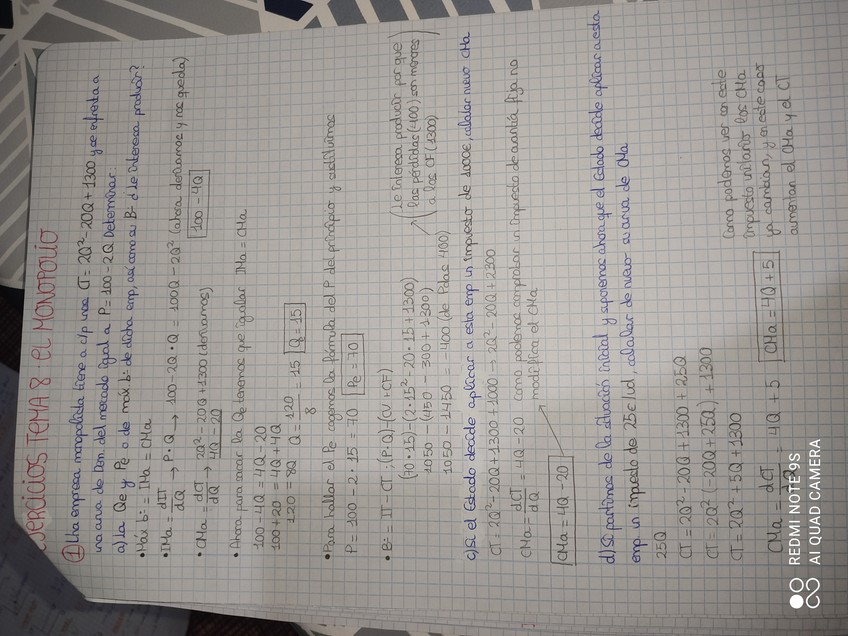 EJERCICIOS TEMA 8: EL MONOPOLIO
① Una empresa monopolista tiene a c/p unos CT = 2Q² - 20Q + 1300 y se enfrenta a
una curva de Dem. del mercado igual a P = 100 - 2Q Determinar:
a) La Qe y Pe o de máx b: de dicha emp, así como su B: ¿le interesa producir?
• Máx b: = IMa = CMa
• IMa = dIT/dQ → P·Q → 100-2Q·Q = 100Q - 2Q² (ahora derivamos y nos queda)
100 - 4Q
• CMa = dCT/dQ → 2Q² - 20Q + 1300 (derivamos)
4Q - 20
• Ahora para sacar la Qe tenemos que igualar IMa = CMa
100 - 4Q = 4Q - 20
100 + 20 = 4Q + 4Q
120 = 8Q Q = 120/8 = 15 Q = 15
• Para hallar el Pe cogemos la fórmula del P del principio y sustituimos
P = 100 - 2·15 = 70 Pe = 70
• B: = IT - CT ; (P·Q) - (CV + CF)
(70·15) - (2·15² - 20·15 + 1300)
1050 - (450 - 300 + 1300)
1050 - 1450 = -400 (de Pdas 400)
(Le interesa producir porque
las pérdidas (400) son menores
a los CF (1300)
c) Si el Estado decide aplicar a esta emp un impuesto de 1000€, calcular nuevo CMa
CT = 2Q² - 20Q + 1300 + 1000 → 2Q² - 20Q + 2300
CMa = dCT/dQ = 4Q - 20 como podemos comprobar un impuesto de cuantía fija no
modifica el CMa
CMa = 4Q - 20
d) Si partimos de la situación inicial y suponemos ahora que el Estado decide aplicar a esta
emp. un impuesto de 25€/ud, calcular de nuevo su curva de CMa
25Q
CT = 2Q² - 20Q + 1300 + 25Q
CT = 2Q² (-20Q + 25Q) + 1300
CT = 2Q² + 5Q + 1300
CMa = dCT/dQ = 4Q + 5 CMa = 4Q + 5
Como podemos ver con este
impuesto unitario los CMa
ya cambian, y en este caso
aumentan el CMa y el CT
REDMI NOTE 9S
AI QUAD CAMERA